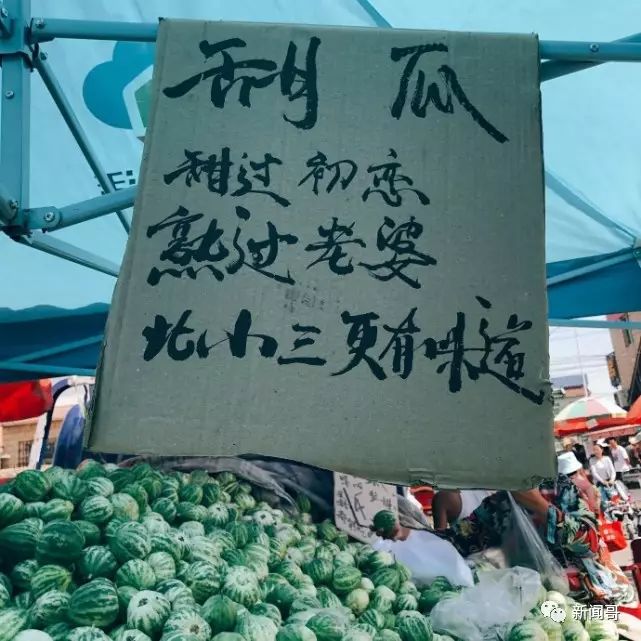 甜瓜
甜过初恋
熟过老婆
比小三更有味道
新闻哥
新闻哥